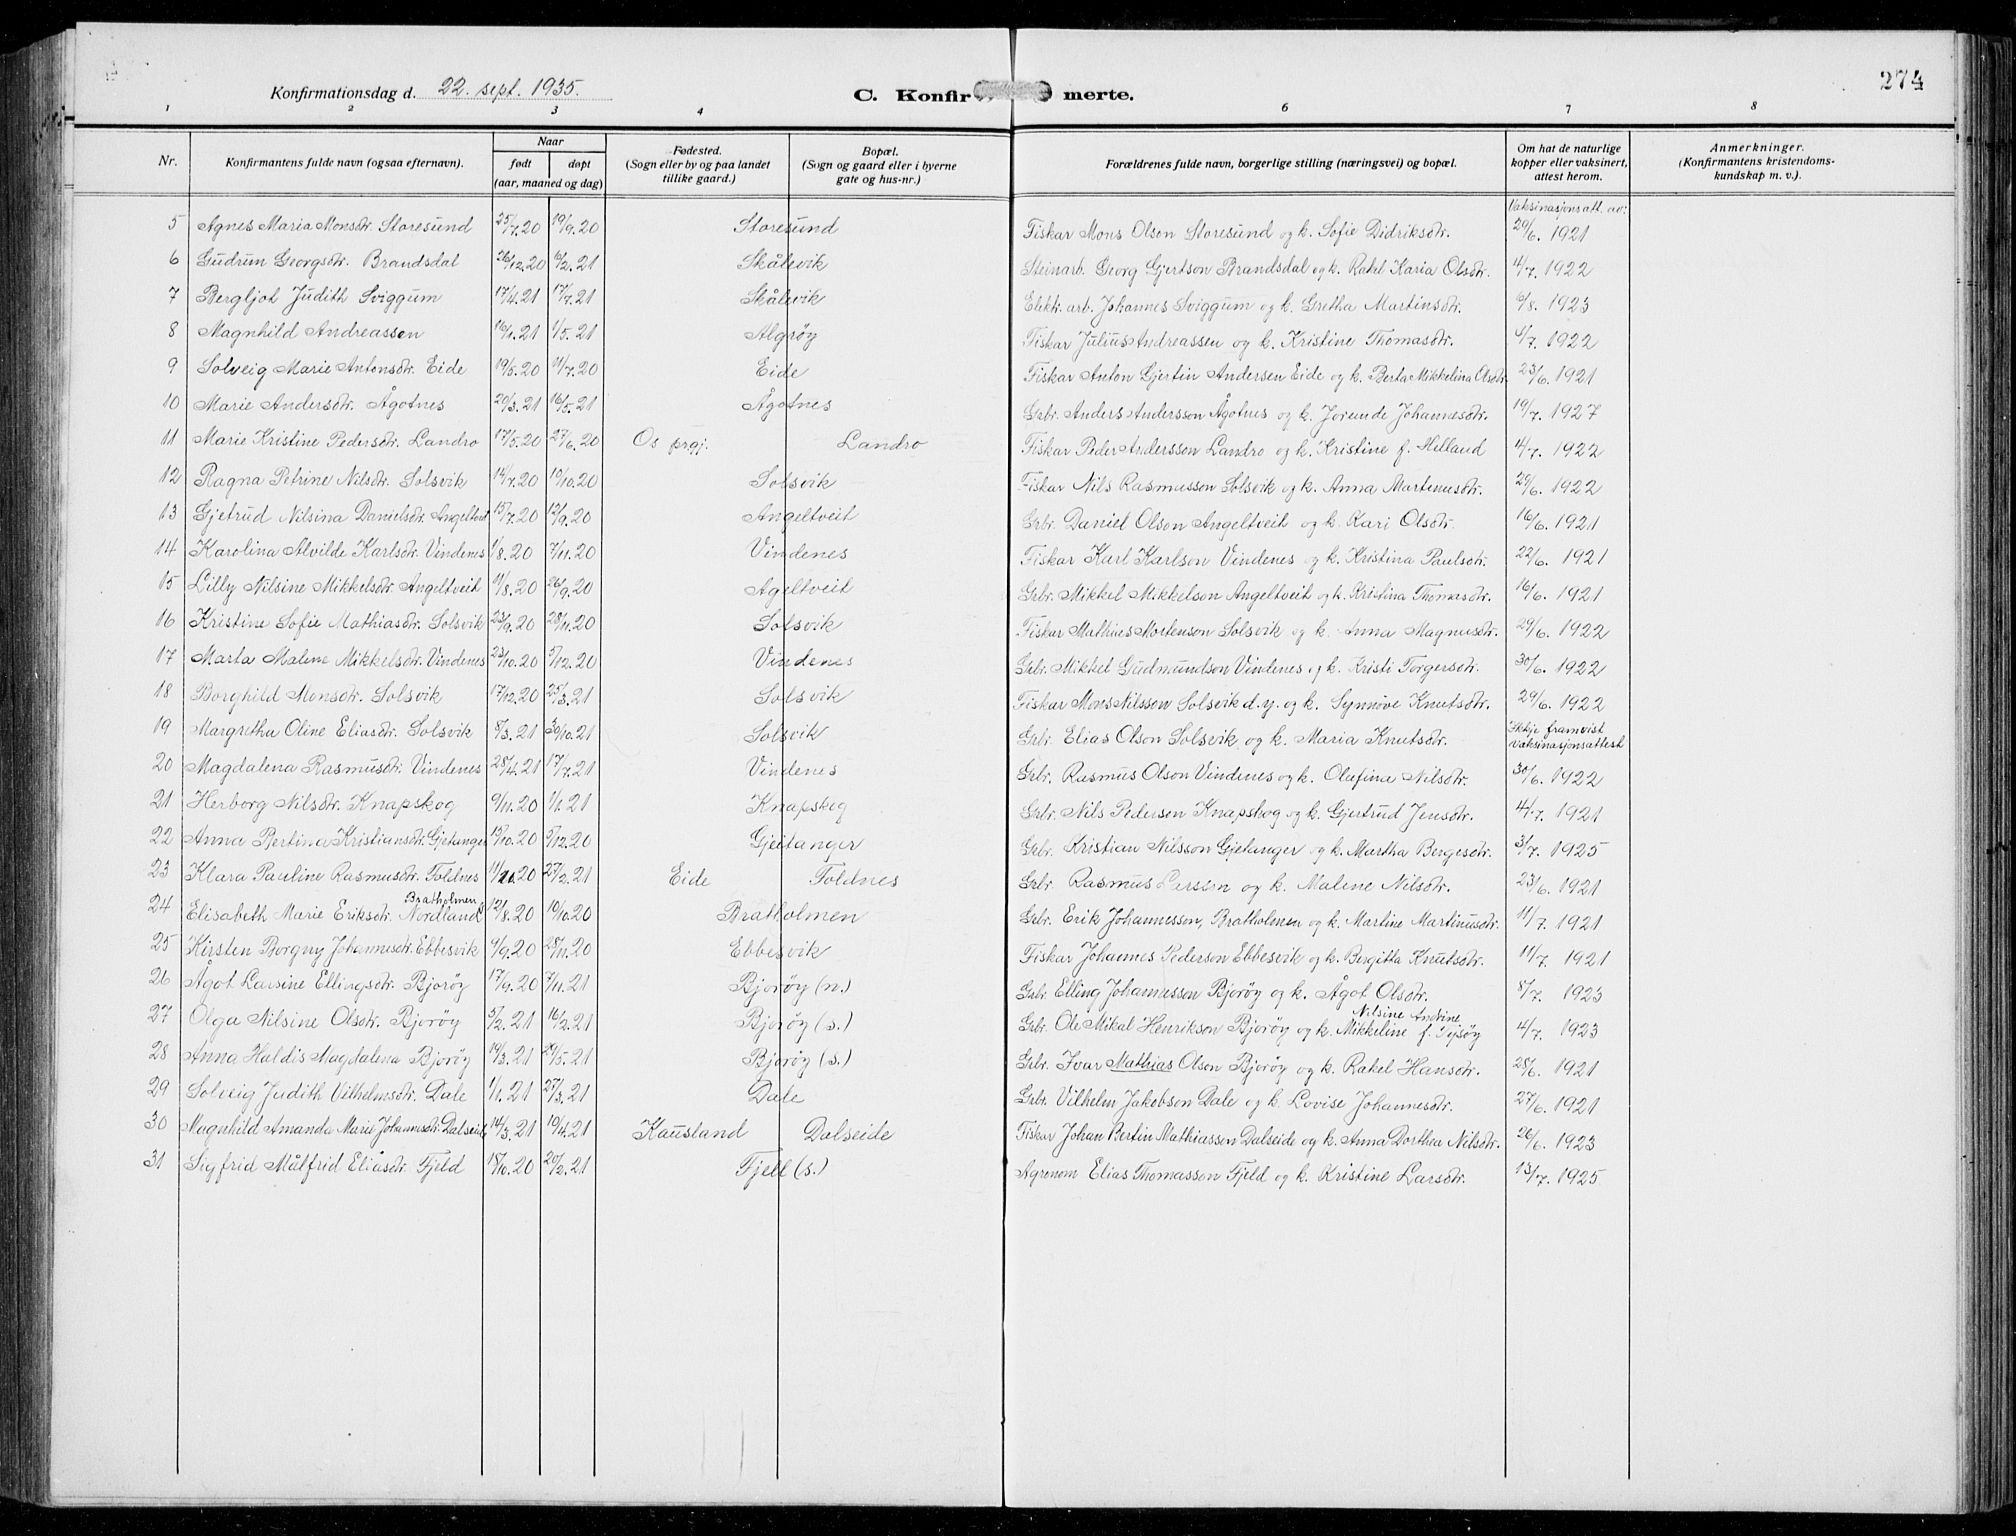 274
Konfirmationsdag d. 22. sept. 1935.
C. Konfirmerte.
1 2 3 4 6 7 8
Nr. Konfirmantens fulde navn (ogsaa efternavn). Naar født døpt (aar, maaned og dag) Fødested. (Sogn eller by og paa landet tillike gaard.) Bopæl. (Sogn og gaard eller i byerne gate og hus-nr.) Forældrenes fulde navn, borgerlige stilling (næringsvei) og bopæl. Om hat de naturlige kopper eller vaksinert, attest herom. Anmerkninger. (Konfirmantens kristendoms-kundskap m. v.).
Vaksinasjonsatt. av:
5 Agnes Maria Monsdtr. Storesund 25/7.20 19/9.20 Storesund Fiskar Mons Olson Storesund og k. Sofie Didriksdtr. 29/6. 1921
6 Gudrun Georgsdtr. Brandsdal 26/12.20 6/2.21 Skålevik Steinarb. Georg Gjertson Brandsdal og k. Rakel Karia Olsdtr. 4/7. 1922
7 Bergljot Judith Sviggum 17/4.21 17/7.21 Skålevik Elektr. arb. Johannes Sviggum og k. Gretha Martinsdtr. 6/8. 1923
8 Magnhild Andreassen 16/1.21 1/5.21 Algrøy Fiskar Julius Andreassen og k. Kristine Thomasdtr. 4/7. 1922
9 Solveig Marie Antonsdtr. Eide 19/5.20 11/7.20 Eide Fiskar Anton Gjertin Andersen Eide og k. Berta Mikkelina Olsdtr. 23/6. 1921
10 Marie Andersdtr. Ågotnes 20/3.21 16/5.21 Ågotnes Grbr. Anders Andersson Ågotnes og k. Jorunde Johannesdtr. 19/7. 1927
11 Marie Kristine Pedersdtr. Landro 17/5.20 27/6.20 Os prgj. Landro Fiskar Peder Andersson Landro og k. Kristine f. Helland 4/7. 1922
12 Ragna Petrine Nilsdtr. Solsvik 14/7.20 10/10.20 Solsvik Fiskar Nils Rasmusson Solsvik og k. Anna Martinusdtr. 29/6. 1922
13 Gjetrud Nilsina Danielsdtr. Angeltveit 15/7.20 12/9.20 Angeltveit Grbr. Daniel Olson Angeltveit og k. Kari Olsdtr. 16/6. 1921
14 Karolina Alvilde Karlsdtr. Vindenes 1/8.20 7/11.20 Vindenes Fiskar Karl Karlson Vindenes og k. Kristina Paulsdtr. 22/6. 1921
15 Lilly Nilsine Mikkelsdtr. Angeltveit 11/8.20 26/9.20 Ageltveit Grbr. Mikkel Mikkelson Angeltveit og k. Kristina Thomasdtr. 16/6. 1921
16 Kristine Sofie Mathiasdtr. Solsvik 23/9.20 28/11.20 Solsvik Fiskar Mathias Mortenson Solsvik og k. Anna Magnusdtr. 29/6. 1922
17 Marta Malene Mikkelsdtr. Vindenes 23/10.20 5/12.20 Vindenes Grbr. Mikkel Gudmundson Vindenes og k. Kristi Torgersdtr. 30/6. 1922
18 Borghild Monsdtr. Solsvik 17/12.20 25/3.21 Solsvik Fiskar Mons Nilsson Solsvik d.y. og k. Synnøve Knutsdtr. 29/6. 1922
19 Margretha Oline Eliasdtr. Solsvik 8/3.21 30/10.21 Solsvik Grbr. Elias Olson Solsvik og k. Maria Knutsdtr. Ikkje framvist vaksinasjonsattest
20 Magdalena Rasmusdtr. Vindenes 28/4.21 17/7.21 Vindenes Grbr. Rasmus Olson Vindenes og k. Olafina Nilsdtr. 30/6. 1922
21 Herborg Nilsdtr. Knapskog 9/11.20 1/1.21 Knapskog Grbr. Nils Pederson Knapskog og k. Gjertrud Jensdtr. 4/7. 1921
22 Anna Bertina Kristiansdtr. Gjetanger 15/10.20 5/12.20 Gjeitanger Grbr. Kristian Nilsson Gjetanger og k. Martha Bergesdtr. 3/7. 1925
23 Klara Pauline Rasmusdtr. Toldnes 20 27/2.21 Eide Toldnes Grbr. Rasmus Larssen og k. Malene Nilsdtr. 23/6. 1921
24 Elisabeth Marie Eriksdtr. Bratholmen Nordland 12/8.20 10/10.20 Bratholmen Grbr. Erik Johannesson, Bratholmen og k. Martine Martinusdtr. 11/7. 1921
25 Kirsten Borgny Johannesdtr. Ebbesvik 9/9.20 28/11.20 Ebbesvik Fiskar Johannes Pederson Ebbesvik og k. Bergitta Knutsdtr. 11/7. 1921
26 Ågot Larsine Ellingsdtr. Bjorøy 17/9.20 7/11.21 Bjorøy (n.) Grbr. Elling Johannesson Bjorøy og k. Ågot Olsdtr. 8/7. 1923
27 Olga Nilsine Olsdtr. Bjorøy 5/2.21 16/2.21 Bjorøy (s.) Grbr. Ole Mikal Henrikson Bjorøy og k. Nilsine Andrine Mikkeline f. Tyssøy 4/7. 1923
28 Anna Haldis Magdalena Bjorøy 19/3.21 29/5.21 Bjorøy (s.) Grbr. Ivar Mathias Olson Bjorøy og k. Rakel Hansdtr. 28/6. 1921
29 Solveig Judith Vilhelmsdtr. Dale 1/1.21 27/3.21 Dale Grbr. Vilhelm Jakobson Dale og k. Lovise Johannesdtr. 27/6. 1921
30 Magnhild Amanda Marie Johannesdtr. Dalseide 14/3.21 19/4.21 Kausland Dalseide Fiskar Johan Bertin Mathiassen Dalseide og k. Anna Dorthea Nilsdtr. 26/6. 1923
31 Sigfrid Målfrid Eliasdtr. Fjeld 18/10.20 20/2.21 Fjell (s.) Agronom Elias Thomasson Fjeld og k. Kristine Larsdtr. 13/7. 1925